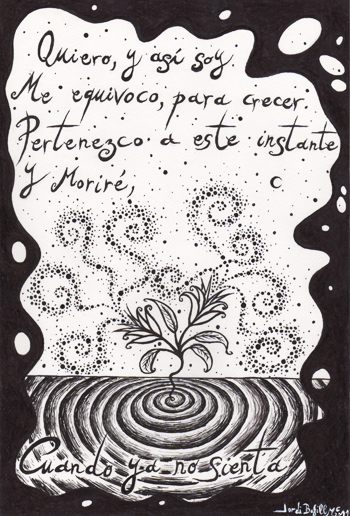 Quiero, y así soy.
Me equivoco, para crecer.
Pertenezco a este instante
Y Moriré,
Cuando ya no sienta
Jordi